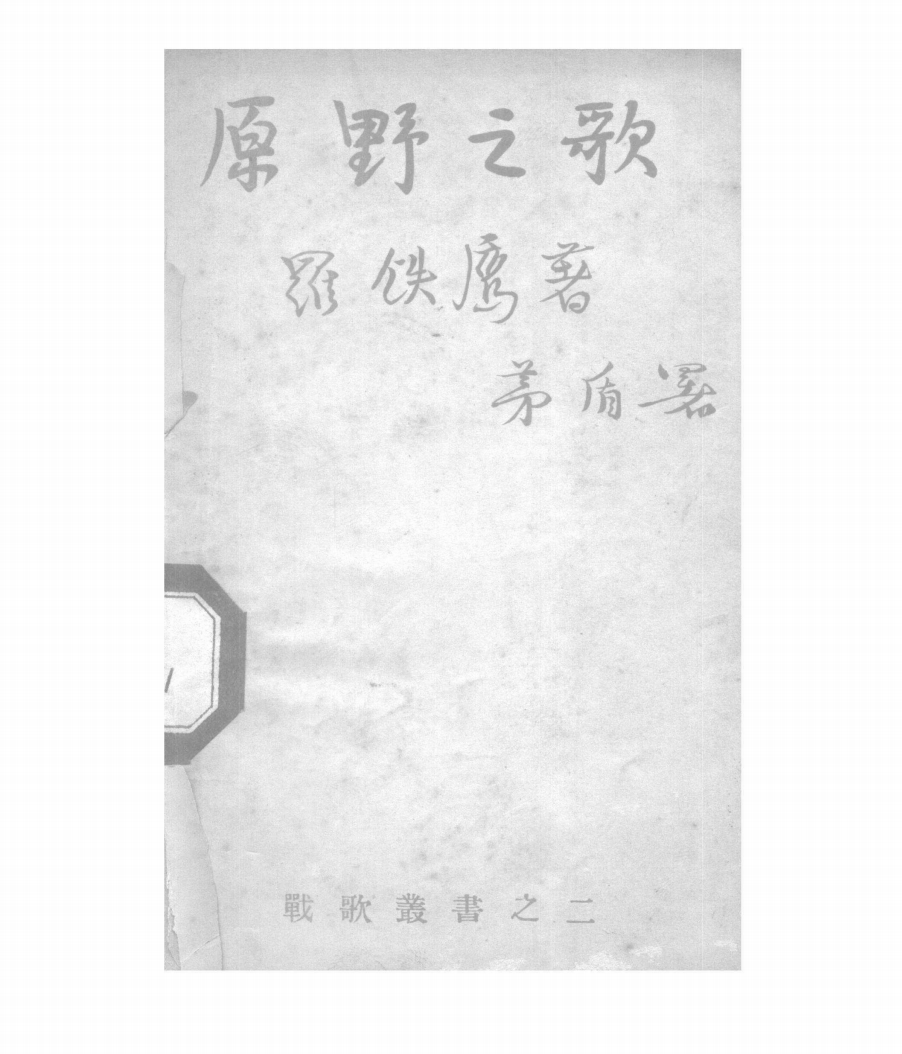 原野之歌
羅鉄鷹著
茅盾署
戰歌叢書之二